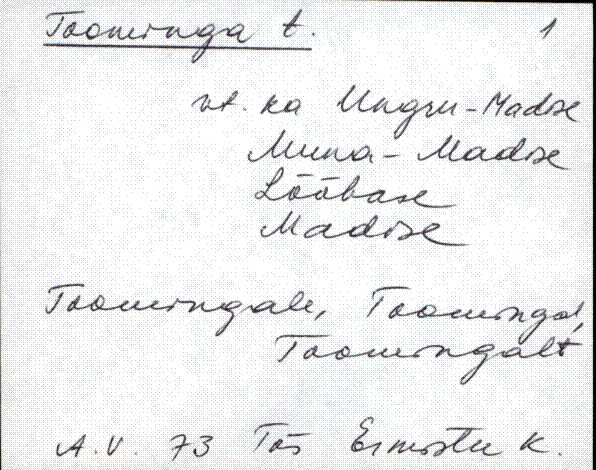 Toominga t. 1
vt. ka Ungru-Madise
Muna-Madise
Lõõbase
Madise
Toomingale, Toomingal,
Toomingalt
A.V. 73 Tõs Ermistu k.